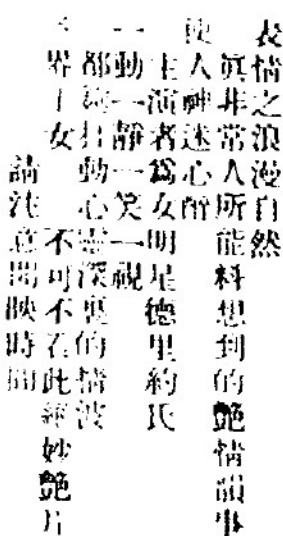 表情之浪漫自然
眞非常人所能料想到的艷情韻事
使人神迷心醉
主演者爲女明星德里約氏
一動一靜一笑一視
都打動心靈深裏的情波
界士女 不可不看此妙艷片
請注意開映時間